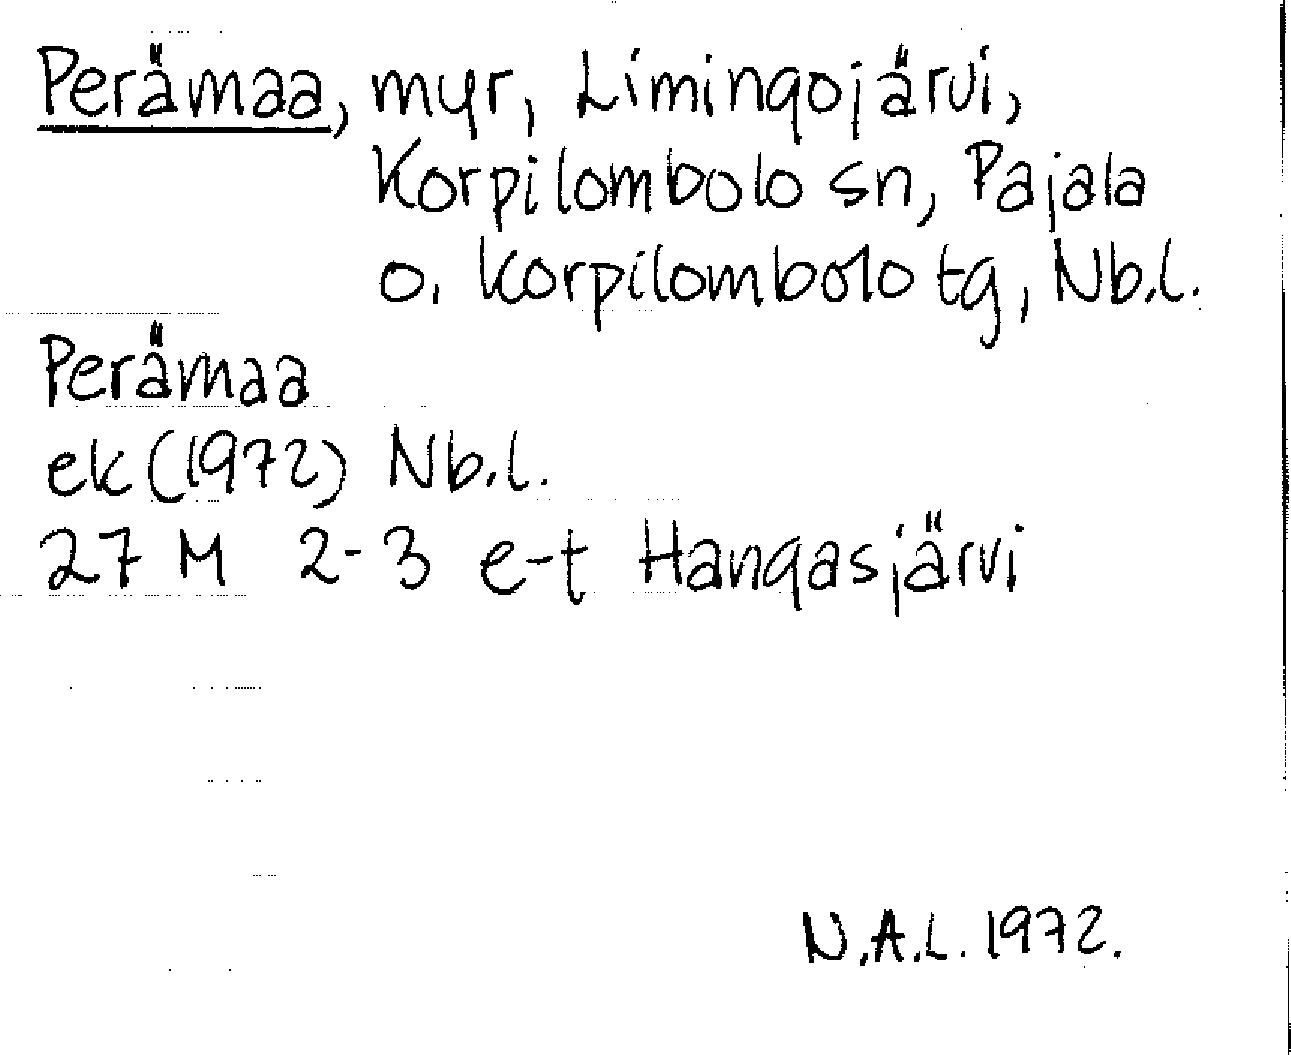 Perämaa, myr, Limingojärvi,
Korpilombolo sn, Pajala
o. Korpilombolo tg, Nb.l.
Perämaa
ek (1972) Nb.l.
27 M 2-3 e-t Hangasjärvi
N.A.L. 1972.